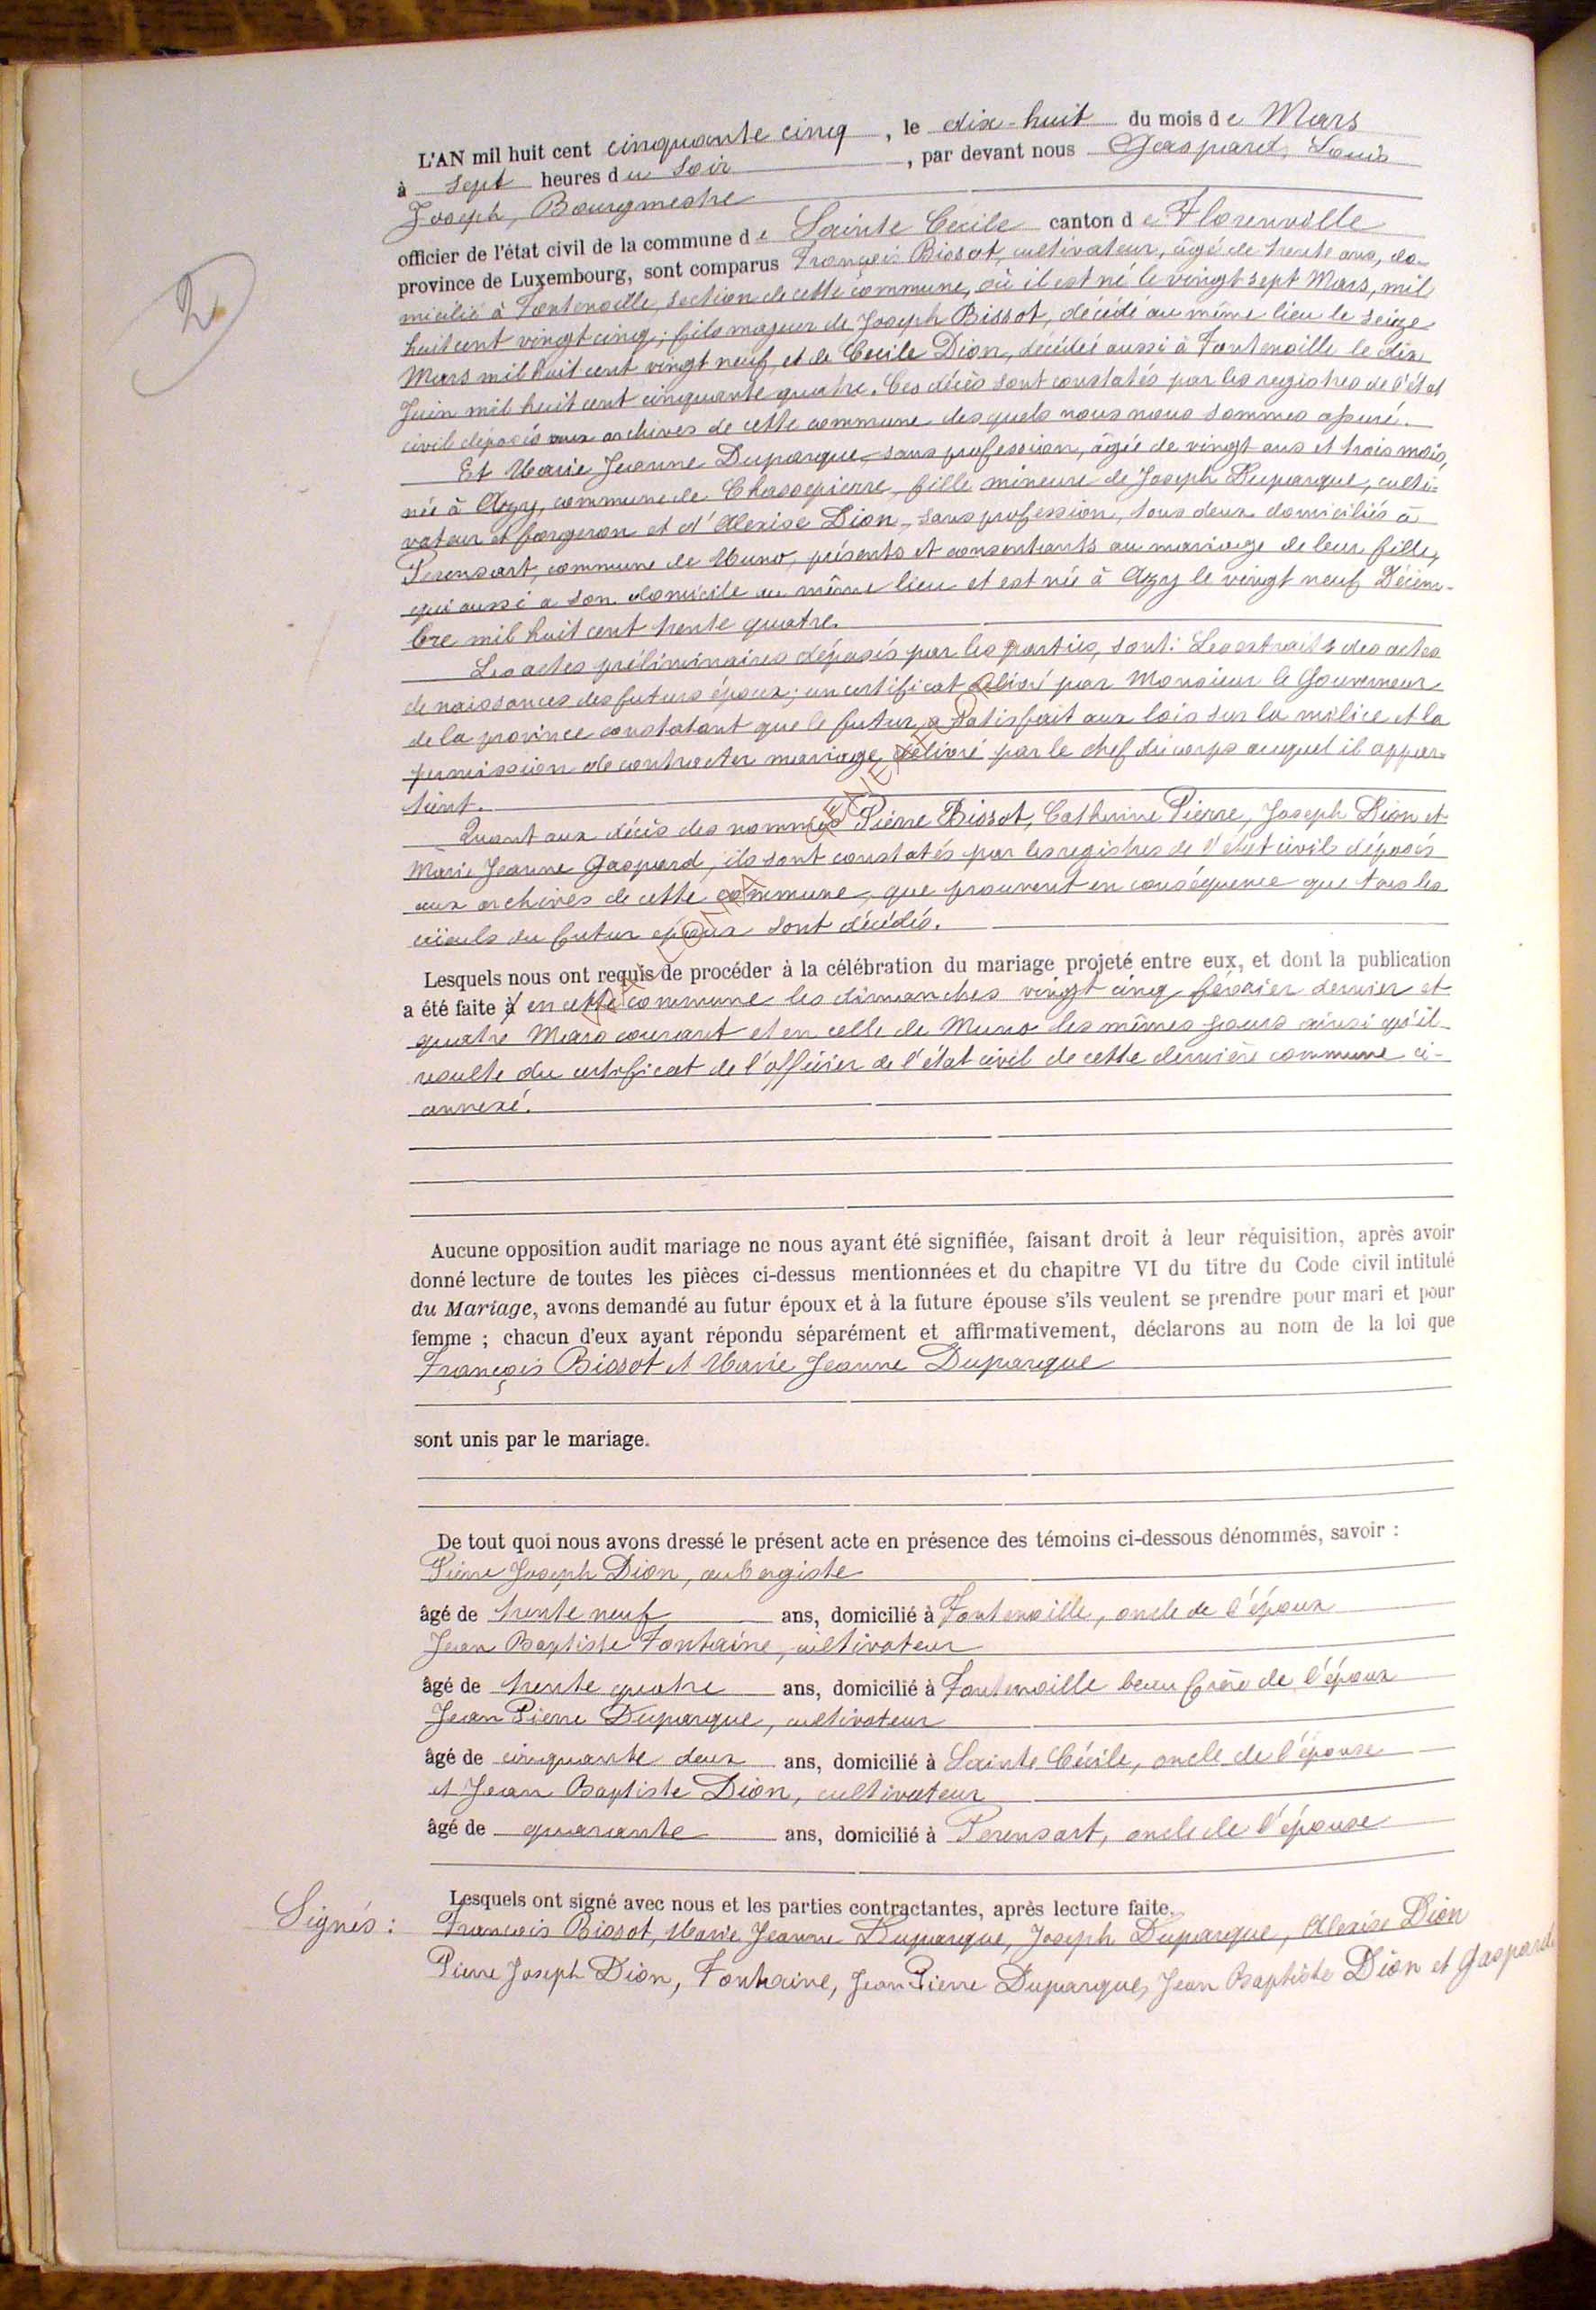 2
L'AN mil huit cent cinquante cinq, le dix-huit du mois de Mars
à sept heures du soir, par devant nous Gaspard, Louis
Joseph, Bourgmestre
officier de l'état civil de la commune de Sainte Cécile canton de Florenville
province de Luxembourg, sont comparus François Bissot, cultivateur, âgé de trente ans, do-
micilié à Fontenoille, section de cette commune, où il est né le vingt sept Mars, mil
huit cent vingt cinq; fils majeur de Joseph Bissot, décédé au même lieu le seize
Mars mil huit cent vingt neuf, et de Cecile Dion, décédée aussi à Fontenoille le dix
Juin mil huit cent cinquante quatre. Ces décès sont constatés par les registres de l'état
civil déposés aux archives de cette commune desquels nous nous sommes assuré.
Et Marie Jeanne Duparque, sans profession, âgée de vingt ans et trois mois,
née à Azy, commune de Chassepierre, fille mineure de Joseph Duparque, culti-
vateur et forgeron et d'Alexise Dion, sans profession, tous deux domiciliés à
Perensart, commune de Muno, présents et consentants au mariage de leur fille,
qui aussi a son domicile au même lieu et est née à Azy le vingt neuf Décem-
bre mil huit cent trente quatre.
Les actes préliminaires déposés par les parties, sont: Les extraits des actes
de naissances des futurs époux; un certificat délivré par Monsieur le Gouverneur
de la province constatant que le futur a satisfait aux lois sur la milice et la
permission de contracter mariage délivré par le chef du corps auquel il appar-
tient.
Quant aux décès des nommés Pierre Bissot, Catherine Pierre, Joseph Dion et
Marie Jeanne Gaspard, ils sont constatés par les registres de l'état civil déposés
aux archives de cette commune, que prouvent en conséquence que tous les
aïeuls du futur époux sont décédés.
Lesquels nous ont requis de procéder à la célébration du mariage projeté entre eux, et dont la publication
a été faite à en cette commune les dimanches vingt cinq février dernier et
quatre Mars courant et en celle de Muno les mêmes jours ainsi qu'il
resulte du certificat de l'officier de l'état civil de cette dernière commune ci-
annexé.
Aucune opposition audit mariage ne nous ayant été signifiée, faisant droit à leur réquisition, après avoir
donné lecture de toutes les pièces ci-dessus mentionnées et du chapitre VI du titre du Code civil intitulé
du Mariage, avons demandé au futur époux et à la future épouse s'ils veulent se prendre pour mari et pour
femme ; chacun d'eux ayant répondu séparément et affirmativement, déclarons au nom de la loi que
François Bissot et Marie Jeanne Duparque
sont unis par le mariage.
De tout quoi nous avons dressé le présent acte en présence des témoins ci-dessous dénommés, savoir :
Pierre Joseph Dion, aubergiste
âgé de trente neuf ans, domicilié à Fontenoille, oncle de l'époux
Jean Baptiste Fontaine, cultivateur
âgé de trente quatre ans, domicilié à Fontenoille beau frère de l'époux
Jean Pierre Duparque, cultivateur
âgé de cinquante deux ans, domicilié à Sainte Cécile, oncle de l'épouse
et Jean Baptiste Dion, cultivateur
âgé de quarante ans, domicilié à Perensart, oncle de l'épouse
Lesquels ont signé avec nous et les parties contractantes, après lecture faite.
Signés : François Bissot, Marie Jeanne Duparque, Joseph Duparque, Alexise Dion
Pierre Joseph Dion, Fontaine, Jean Pierre Duparque, Jean Baptiste Dion et Gaspard